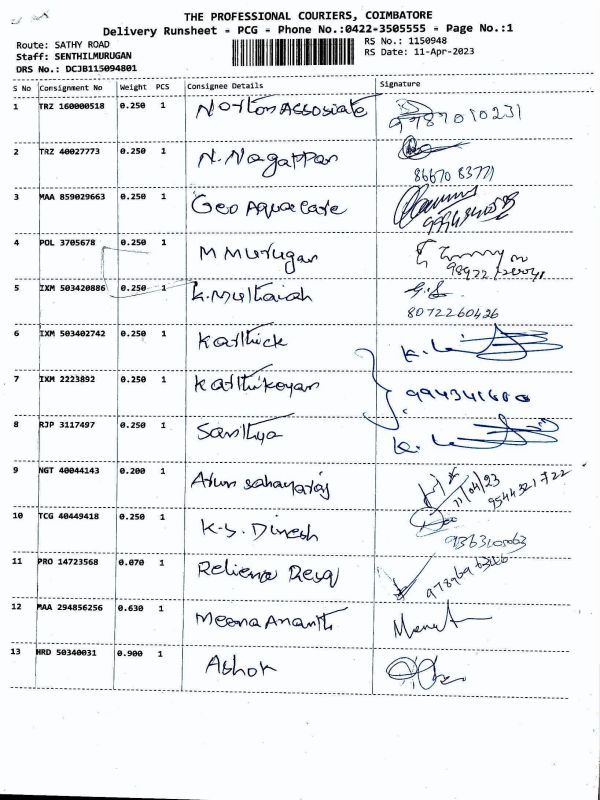 THE PROFESSIONAL COURIERS, COIMBATORE
Delivery Runsheet - PCG - Phone No.:0422-3505555 - Page No.:1
Route: SATHY ROAD
RS No.: 1150948
Staff: SENTHILMURUGAN
RS Date: 11-Apr-2023
DRS No.: DCJB115094801
S No Consignment No Weight PCS Consignee Details Signature
1 TRZ 160000518 0.250 1 Norton Associate 9787010231
2 TRZ 40027773 0.250 1 N. Nagappan
8667083771
3 MAA 859029663 0.250 1 Geo Aquacare
4 POL 3705678 0.250 1 M Murugan
5 IXM 503420886 0.250 1 K. Muthaiah
8072260426
6 IXM 503402742 0.250 1 Karthick
7 IXM 2223892 0.250 1 Karthikeyan
8 RJP 3117497 0.250 1 Santhya
9 NGT 40044143 0.200 1 Arun Sahayaraj 11/04/23 9544321722
10 TCG 40449418 0.250 1 K.S. Dinesh
11 PRO 14723568 0.070 1
12 MAA 294856256 0.630 1 Meena Ananth
13 HRD 50340031 0.900 1 Ashok